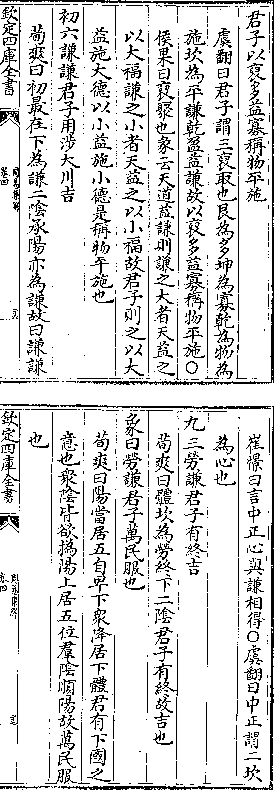 君子以裒多益寡稱物平施
虞翻曰君子謂三裒取也艮為多坤為寡乾為物為
施坎為平謙乾盈益謙故以裒多益寡稱物平施○
侯果曰裒聚也彖云天道益謙則謙之大者天益之
以大福謙之小者天益之以小福故君子則之以大
益施大德以小益施小德是稱物平施也
初六謙謙君子用涉大川吉
荀爽曰初最在下為謙二陰承陽亦為謙故曰謙謙
欽定四庫全書
卷四
崔憬曰言中正心與謙相得○虞翻曰中正謂二坎
為心也
九三勞謙君子有終吉
荀爽曰體坎為勞終下二陰君子有終故吉也
象曰勞謙君子萬民服也
荀爽曰陽當居五自卑下衆降居下體君有下國之
意也衆陰皆欲撝陽上居五位羣陰順陽故萬民服
也
欽定四庫全書
卷四